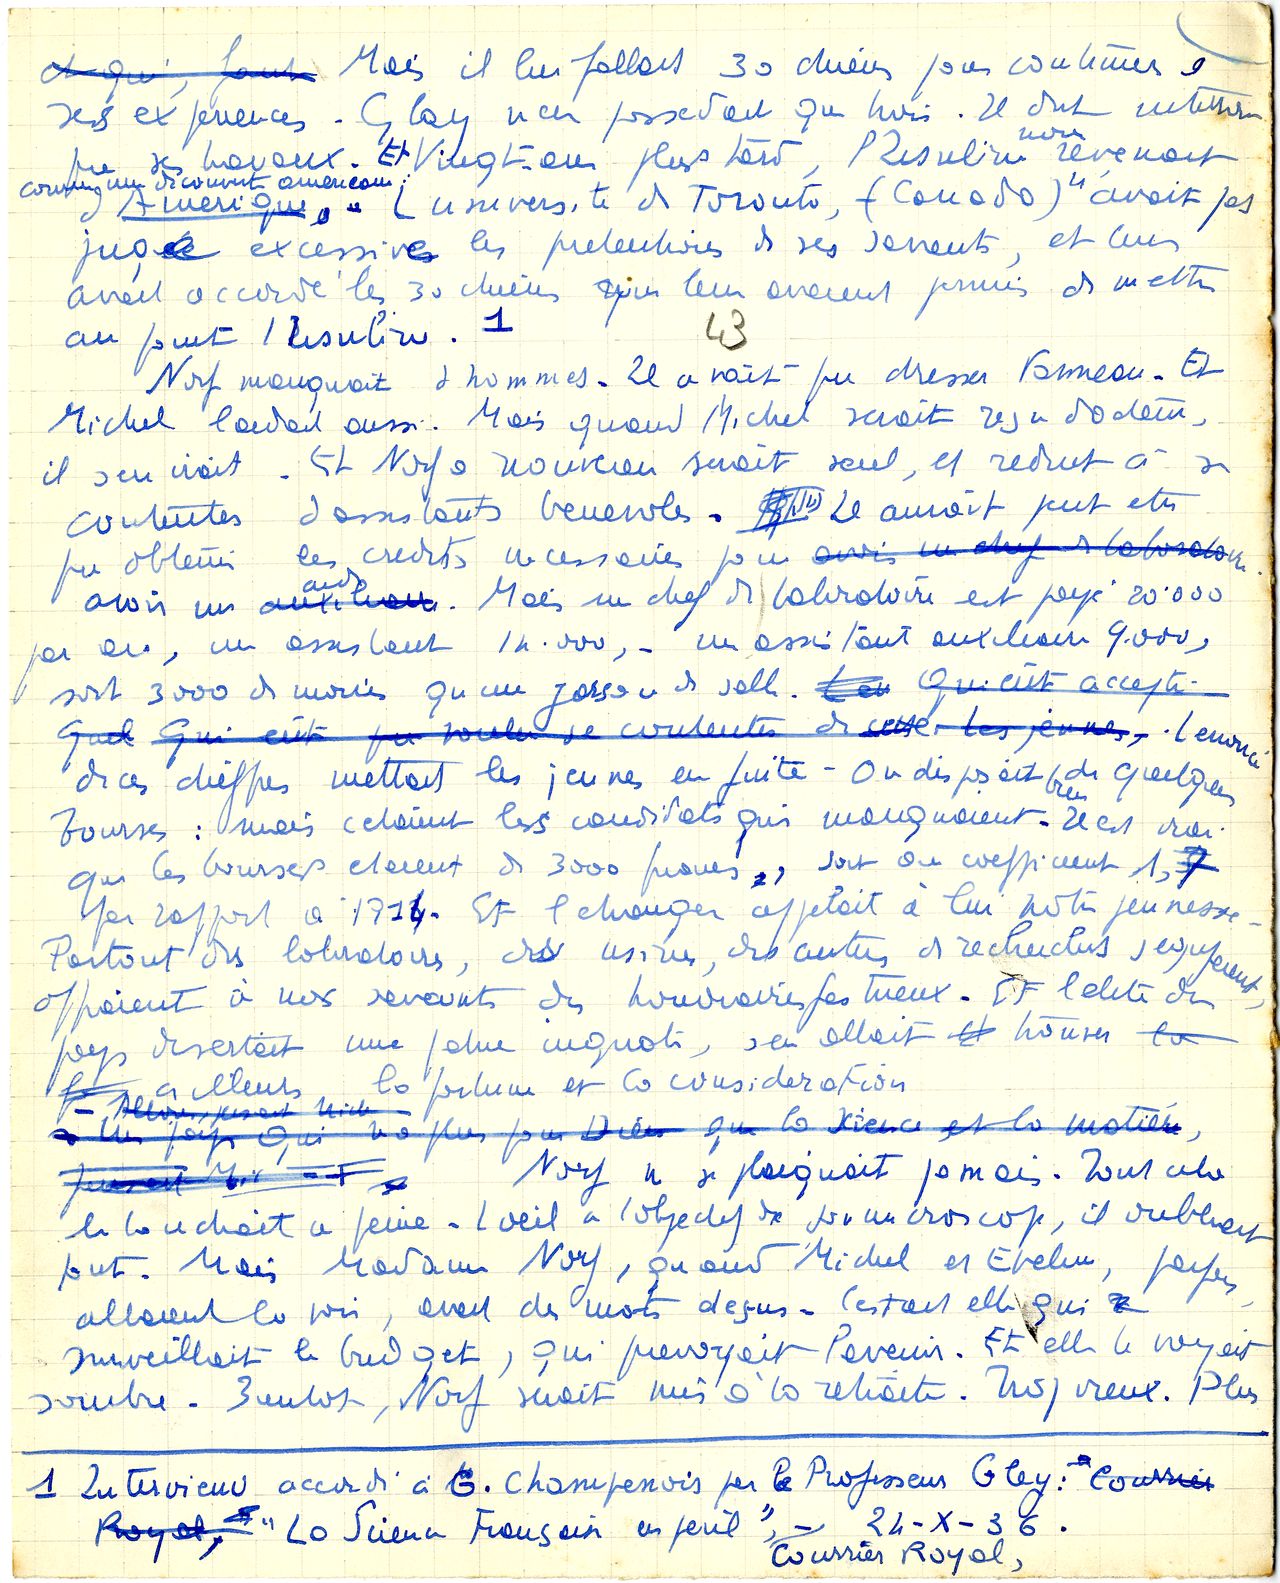 et qui, faut Mais il lui fallait 30 chiens pour continuer
ses expériences. Gley n'en possédait que trois. Il dut interrom
pre ses travaux. Et Vingt ans plus tard, l'Insuline nous revenait
comme une découverte américaine.
d'Amérique. L'université de Toronto, (Canada) n'avait pas
jugé excessives les prétentions de ses savants, et leur
avait accordé les 30 chiens qui leur avaient permis de mettre
au point l'Insuline. 1
43
Norf manquait d'hommes. Il avait pu dresser Vanneau. Et
Michel l'aidait aussi. Mais quand Michel serait reçu docteur,
il s'en irait. Et Norf à nouveau serait seul, et réduit à se
contenter d'assistants bénévoles. Il aurait peut etre
pu obtenir les crédits nécessaires pour avoir un chef de laboratoire.
avoir un auxiliaire aide. Mais un chef de laboratoire est payé 20.000
par an, un assistant 14.000, - un assistant auxiliaire 9.000,
soit 3000 de moins qu'un garçon de salle. Qui eût accepté
Quel Qui eût pu vouloir se contenter de cette Les jeunes, L'énoncé
de ces chiffres mettait les jeunes en fuite - On disposait bien de quelques
bourses : mais c'étaient les candidats qui manquaient. Il est vrai
que les bourses étaient de 3000 francs, soit au coefficient 1,
par rapport à 1914. Et l'étranger appelait à lui notre jeunesse -
Partout des laboratoires, des usines, des centres de recherches s'équipaient,
offraient à nos savants des honoraires fastueux. Et l'élite du
pays désertait une patrie ingrate, s'en allait trouver la
ailleurs la fortune et la considération
- Allons, pensait Michel -
- Un pays qui n'a plus pour Dieu que la Science et la matière,
pensait Norf ne se plaignait jamais. Tout cela
le touchait à peine - L'oeil à l'objectif de son microscope, il oubliait
tout. Mais Madame Norf, quand Michel et Evelyne, parfois,
allaient la voir, avait des mots déçus - C'était elle qui
surveillait le budget, qui prévoyait l'avenir. Et elle le voyait
sombre. Bientôt, Norf serait mis à la retraite. Trop vieux. Plus
1 Interview accordé à G. Champenois par le Professeur Gley : "Courrier
Royal, "La Science Française en péril", - 24-X-36.
Courrier Royal,